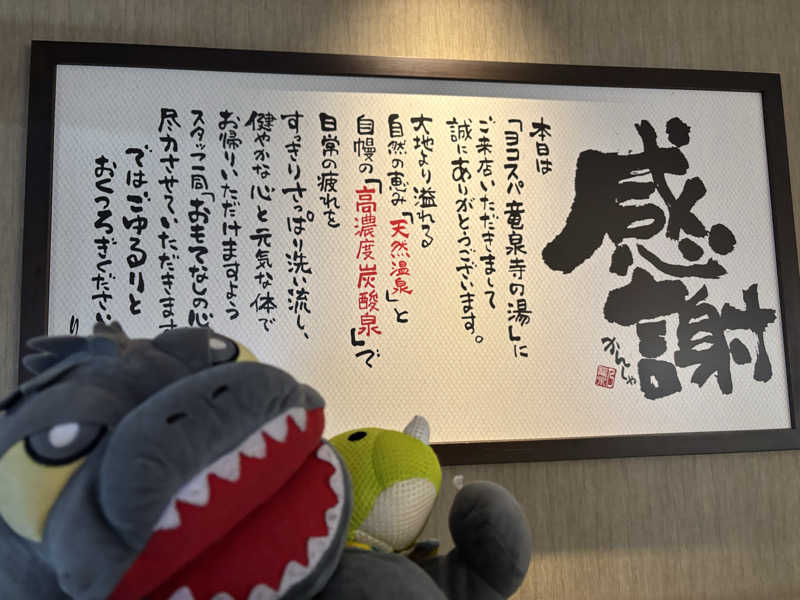 感謝
かんしゃ
本日は
「ヨコスパ 竜泉寺の湯」に
ご来店いただきまして
誠にありがとうございます。
大地より溢れる
自然の恵み「天然温泉」と
自慢の「高濃度炭酸泉」で
日常の疲れを
すっきりさっぱり洗い流し、
健やかな心と元気な体で
お帰りいただけますよう
スタッフ一同「おもてなしの心
尽力させていただきます
ではごゆるりと
おくつろぎください